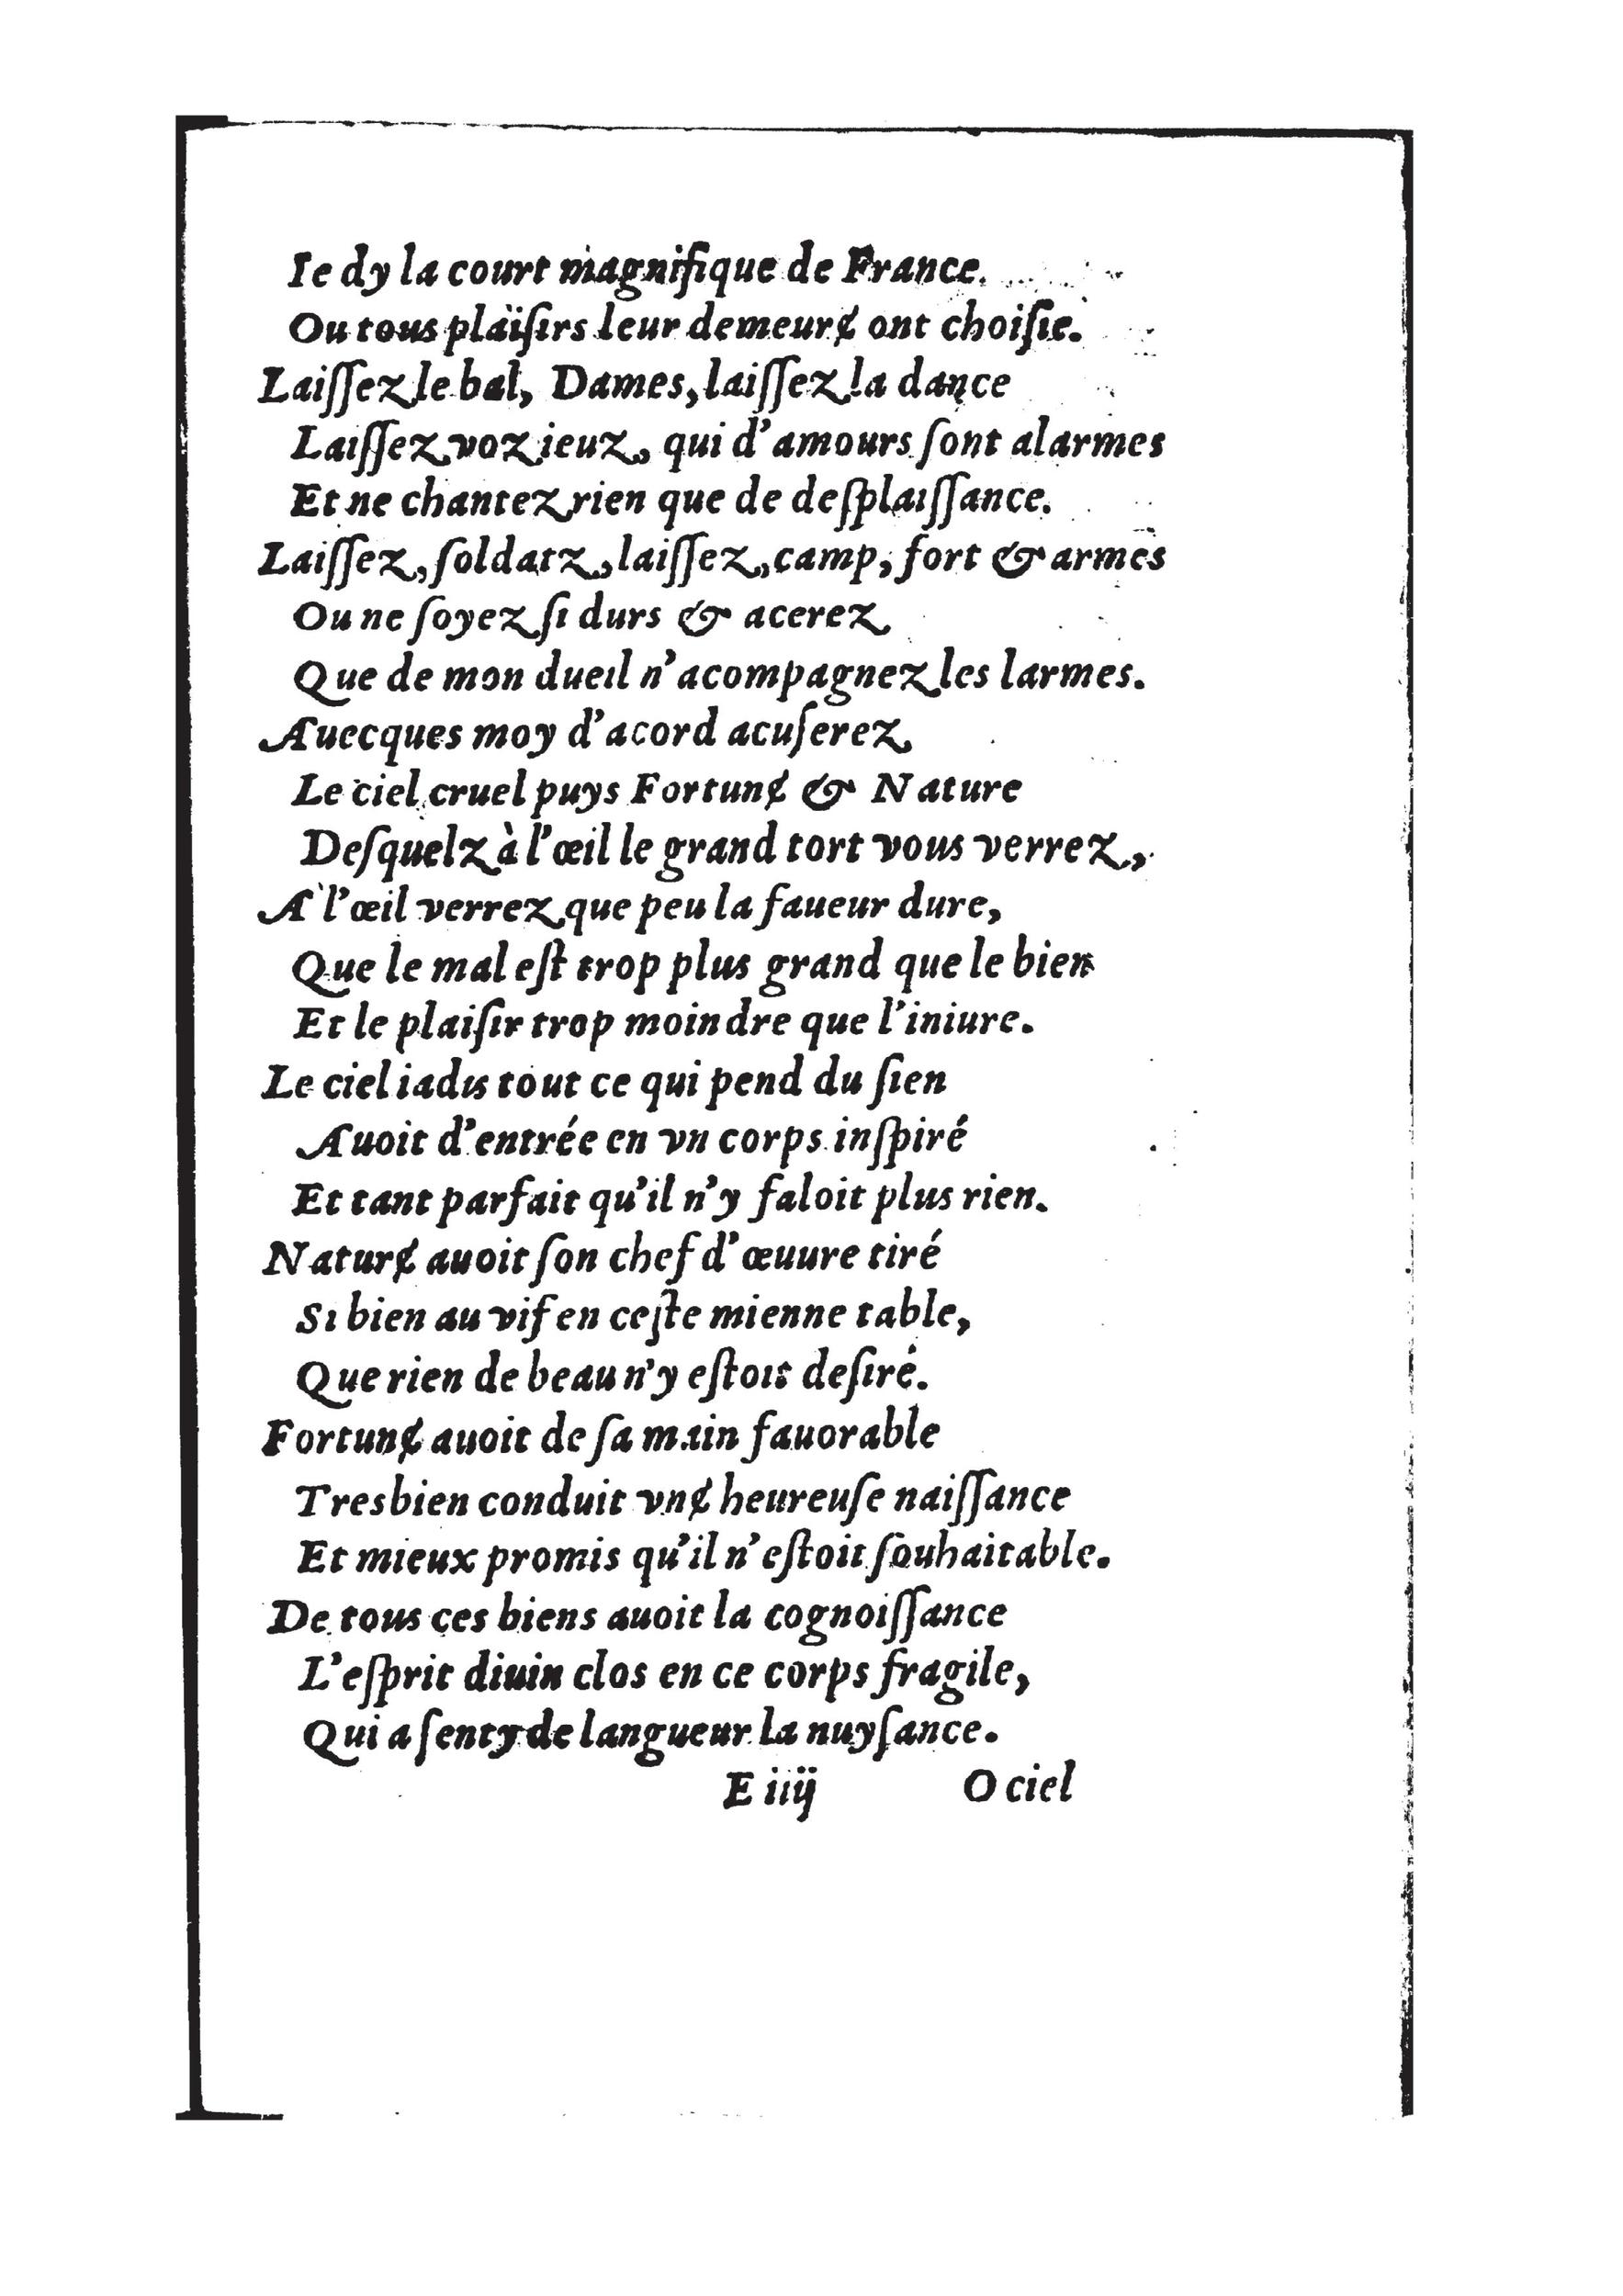 Ie dy la court magnifique de France.
Ou tous plaiſirs leur demeurɇ ont choiſie.
Laiſſez le bal, Dames, laiſſez la dance
Laiſſez voz ieuz, qui d'amours ſont alarmes
Et ne chantez rien que de deſplaiſſance.
Laiſſez, ſoldatz, laiſſez, camp, fort & armes
Ou ne ſoyez ſi durs & acerez
Que de mon dueil n'acompagnez les larmes.
Auecques moy d'acord acuſerez
Le ciel cruel puys Fortunɇ & Nature
Deſquelz à l'œil le grand tort vous verrez,
A l'œil verrez que peu la faueur dure,
Que le mal eſt trop plus grand que le bien
Et le plaiſir trop moindre que l'iniure.
Le ciel iadis tout ce qui pend du ſien
Auoit d'entrée en vn corps inſpiré
Et tant parfait qu'il n'y faloit plus rien.
Naturɇ auoit ſon chef d'œuure tiré
Si bien au vif en ceſte mienne table,
Que rien de beau n'y eſtoit deſiré.
Fortunɇ auoit de ſa main fauorable
Tresbien conduit vnɇ heureuſe naiſſance
Et mieux promis qu'il n'eſtoit ſouhaitable.
De tous ces biens auoit la cognoiſſance
L'eſprit diuin clos en ce corps fragile,
Qui a ſenty de langueur la nuyſance.
E iiij O ciel